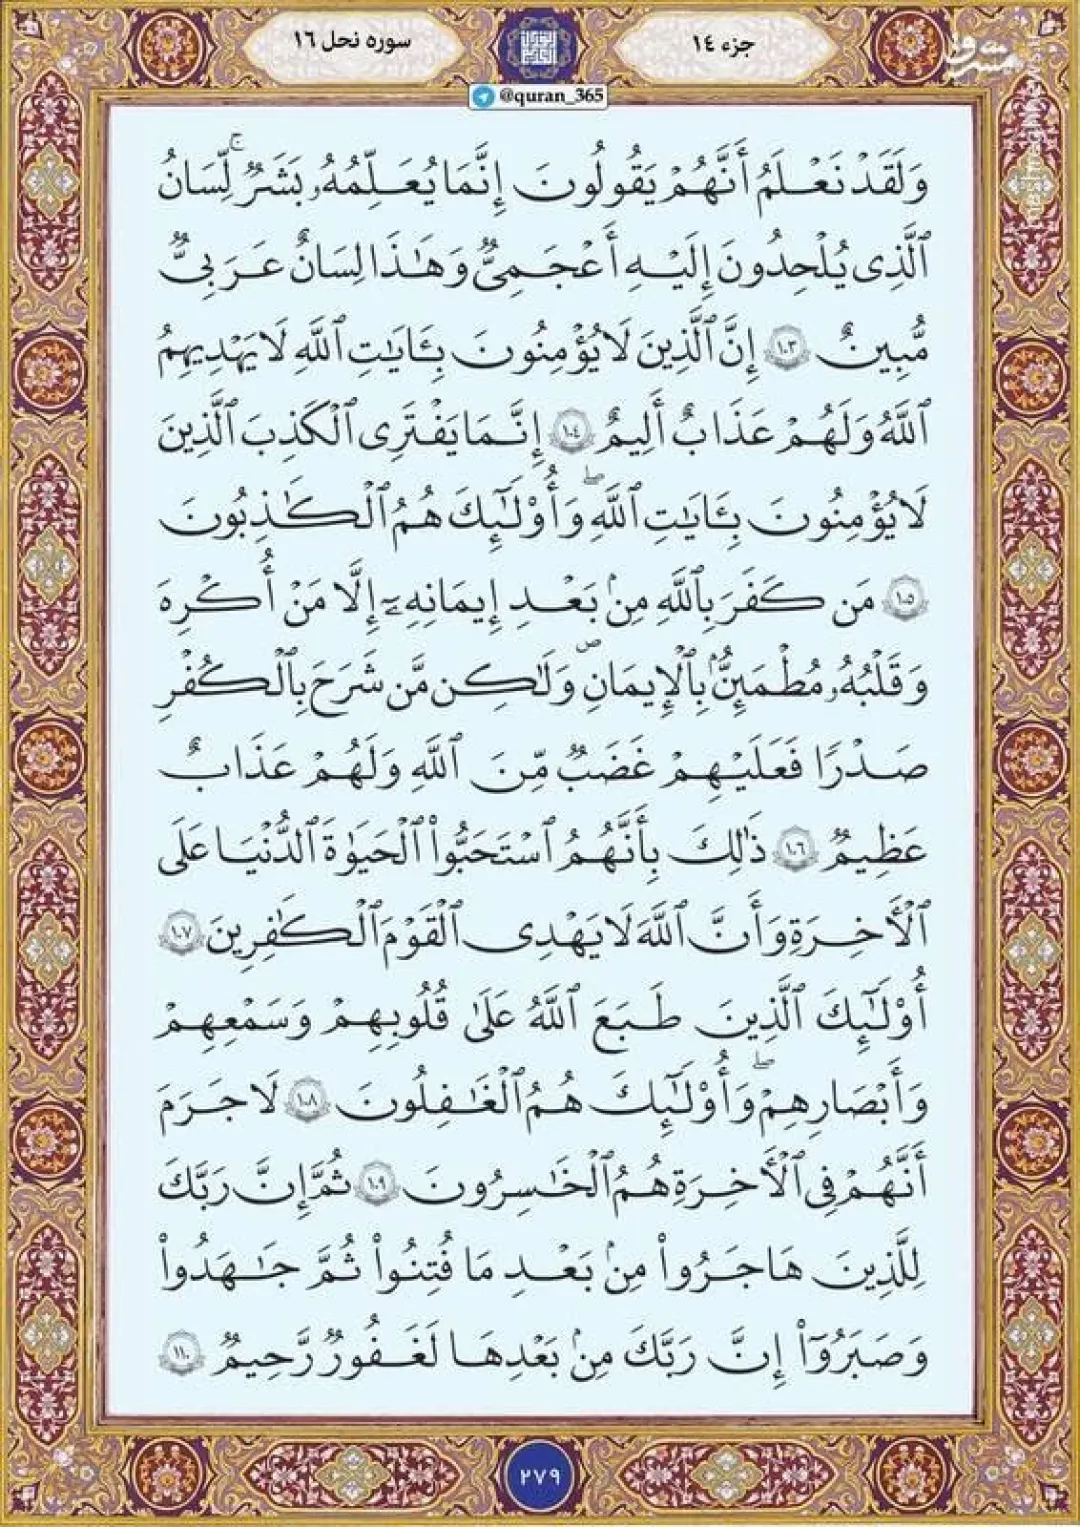 سوره نحل ١٦
جزء ١٤
@quran_365
مشرق
mashreghnews
وَلَقَدْ نَعْلَمُ أَنَّهُمْ يَقُولُونَ إِنَّمَا يُعَلِّمُهُۥ بَشَرٌ ۚ لِّسَانُ
ٱلَّذِى يُلْحِدُونَ إِلَيْهِ أَعْجَمِىٌّ وَهَٰذَا لِسَانٌ عَرَبِىٌّ
مُّبِينٌ ١٠٣ إِنَّ ٱلَّذِينَ لَا يُؤْمِنُونَ بِـَٔايَٰتِ ٱللَّهِ لَا يَهْدِيهِمُ
ٱللَّهُ وَلَهُمْ عَذَابٌ أَلِيمٌ ١٠٤ إِنَّمَا يَفْتَرِى ٱلْكَذِبَ ٱلَّذِينَ
لَا يُؤْمِنُونَ بِـَٔايَٰتِ ٱللَّهِ ۖ وَأُوْلَٰٓئِكَ هُمُ ٱلْكَٰذِبُونَ
١٠٥ مَن كَفَرَ بِٱللَّهِ مِنۢ بَعْدِ إِيمَانِهِۦٓ إِلَّا مَنْ أُكْرِهَ
وَقَلْبُهُۥ مُطْمَئِنٌّۢ بِٱلْإِيمَانِ ۖ وَلَٰكِن مَّن شَرَحَ بِٱلْكُفْرِ
صَدْرًا فَعَلَيْهِمْ غَضَبٌ مِّنَ ٱللَّهِ وَلَهُمْ عَذَابٌ
عَظِيمٌ ١٠٦ ذَٰلِكَ بِأَنَّهُمُ ٱسْتَحَبُّواْ ٱلْحَيَوٰةَ ٱلدُّنْيَا عَلَى
ٱلْأَخِرَةِ وَأَنَّ ٱللَّهَ لَا يَهْدِى ٱلْقَوْمَ ٱلْكَٰفِرِينَ ١٠٧
أُوْلَٰٓئِكَ ٱلَّذِينَ طَبَعَ ٱللَّهُ عَلَىٰ قُلُوبِهِمْ وَسَمْعِهِمْ
وَأَبْصَارِهِمْ ۖ وَأُوْلَٰٓئِكَ هُمُ ٱلْغَٰفِلُونَ ١٠٨ لَا جَرَمَ
أَنَّهُمْ فِى ٱلْأَخِرَةِ هُمُ ٱلْخَٰسِرُونَ ١٠٩ ثُمَّ إِنَّ رَبَّكَ
لِلَّذِينَ هَاجَرُواْ مِنۢ بَعْدِ مَا فُتِنُواْ ثُمَّ جَٰهَدُواْ
وَصَبَرُوٓاْ إِنَّ رَبَّكَ مِنۢ بَعْدِهَا لَغَفُورٌ رَّحِيمٌ ١١٠
٢٧٩